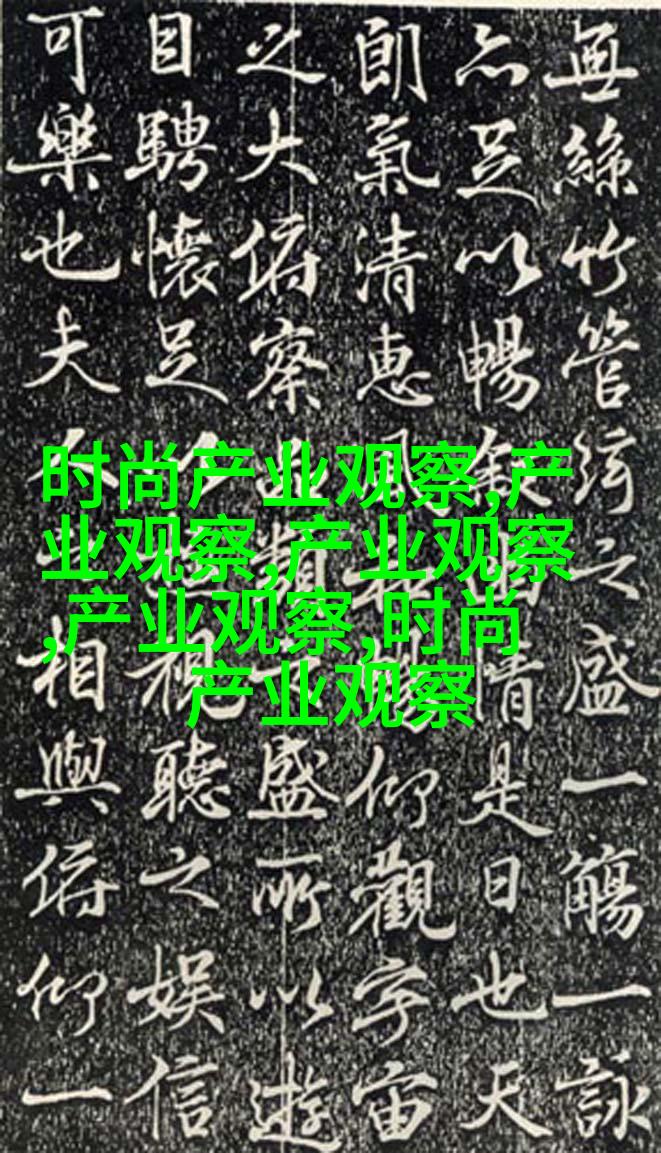 無絲竹管絃之盛一觴一詠
亦足以暢敘情是日也天
朗氣清惠仰觀宇宙
之大俯察類盛所以遊
目騁懷足視聽之娛信
可樂也夫相與俯仰一
时尚产业观察,产
业观察,产业观察
,产业观察,时尚
产业观察